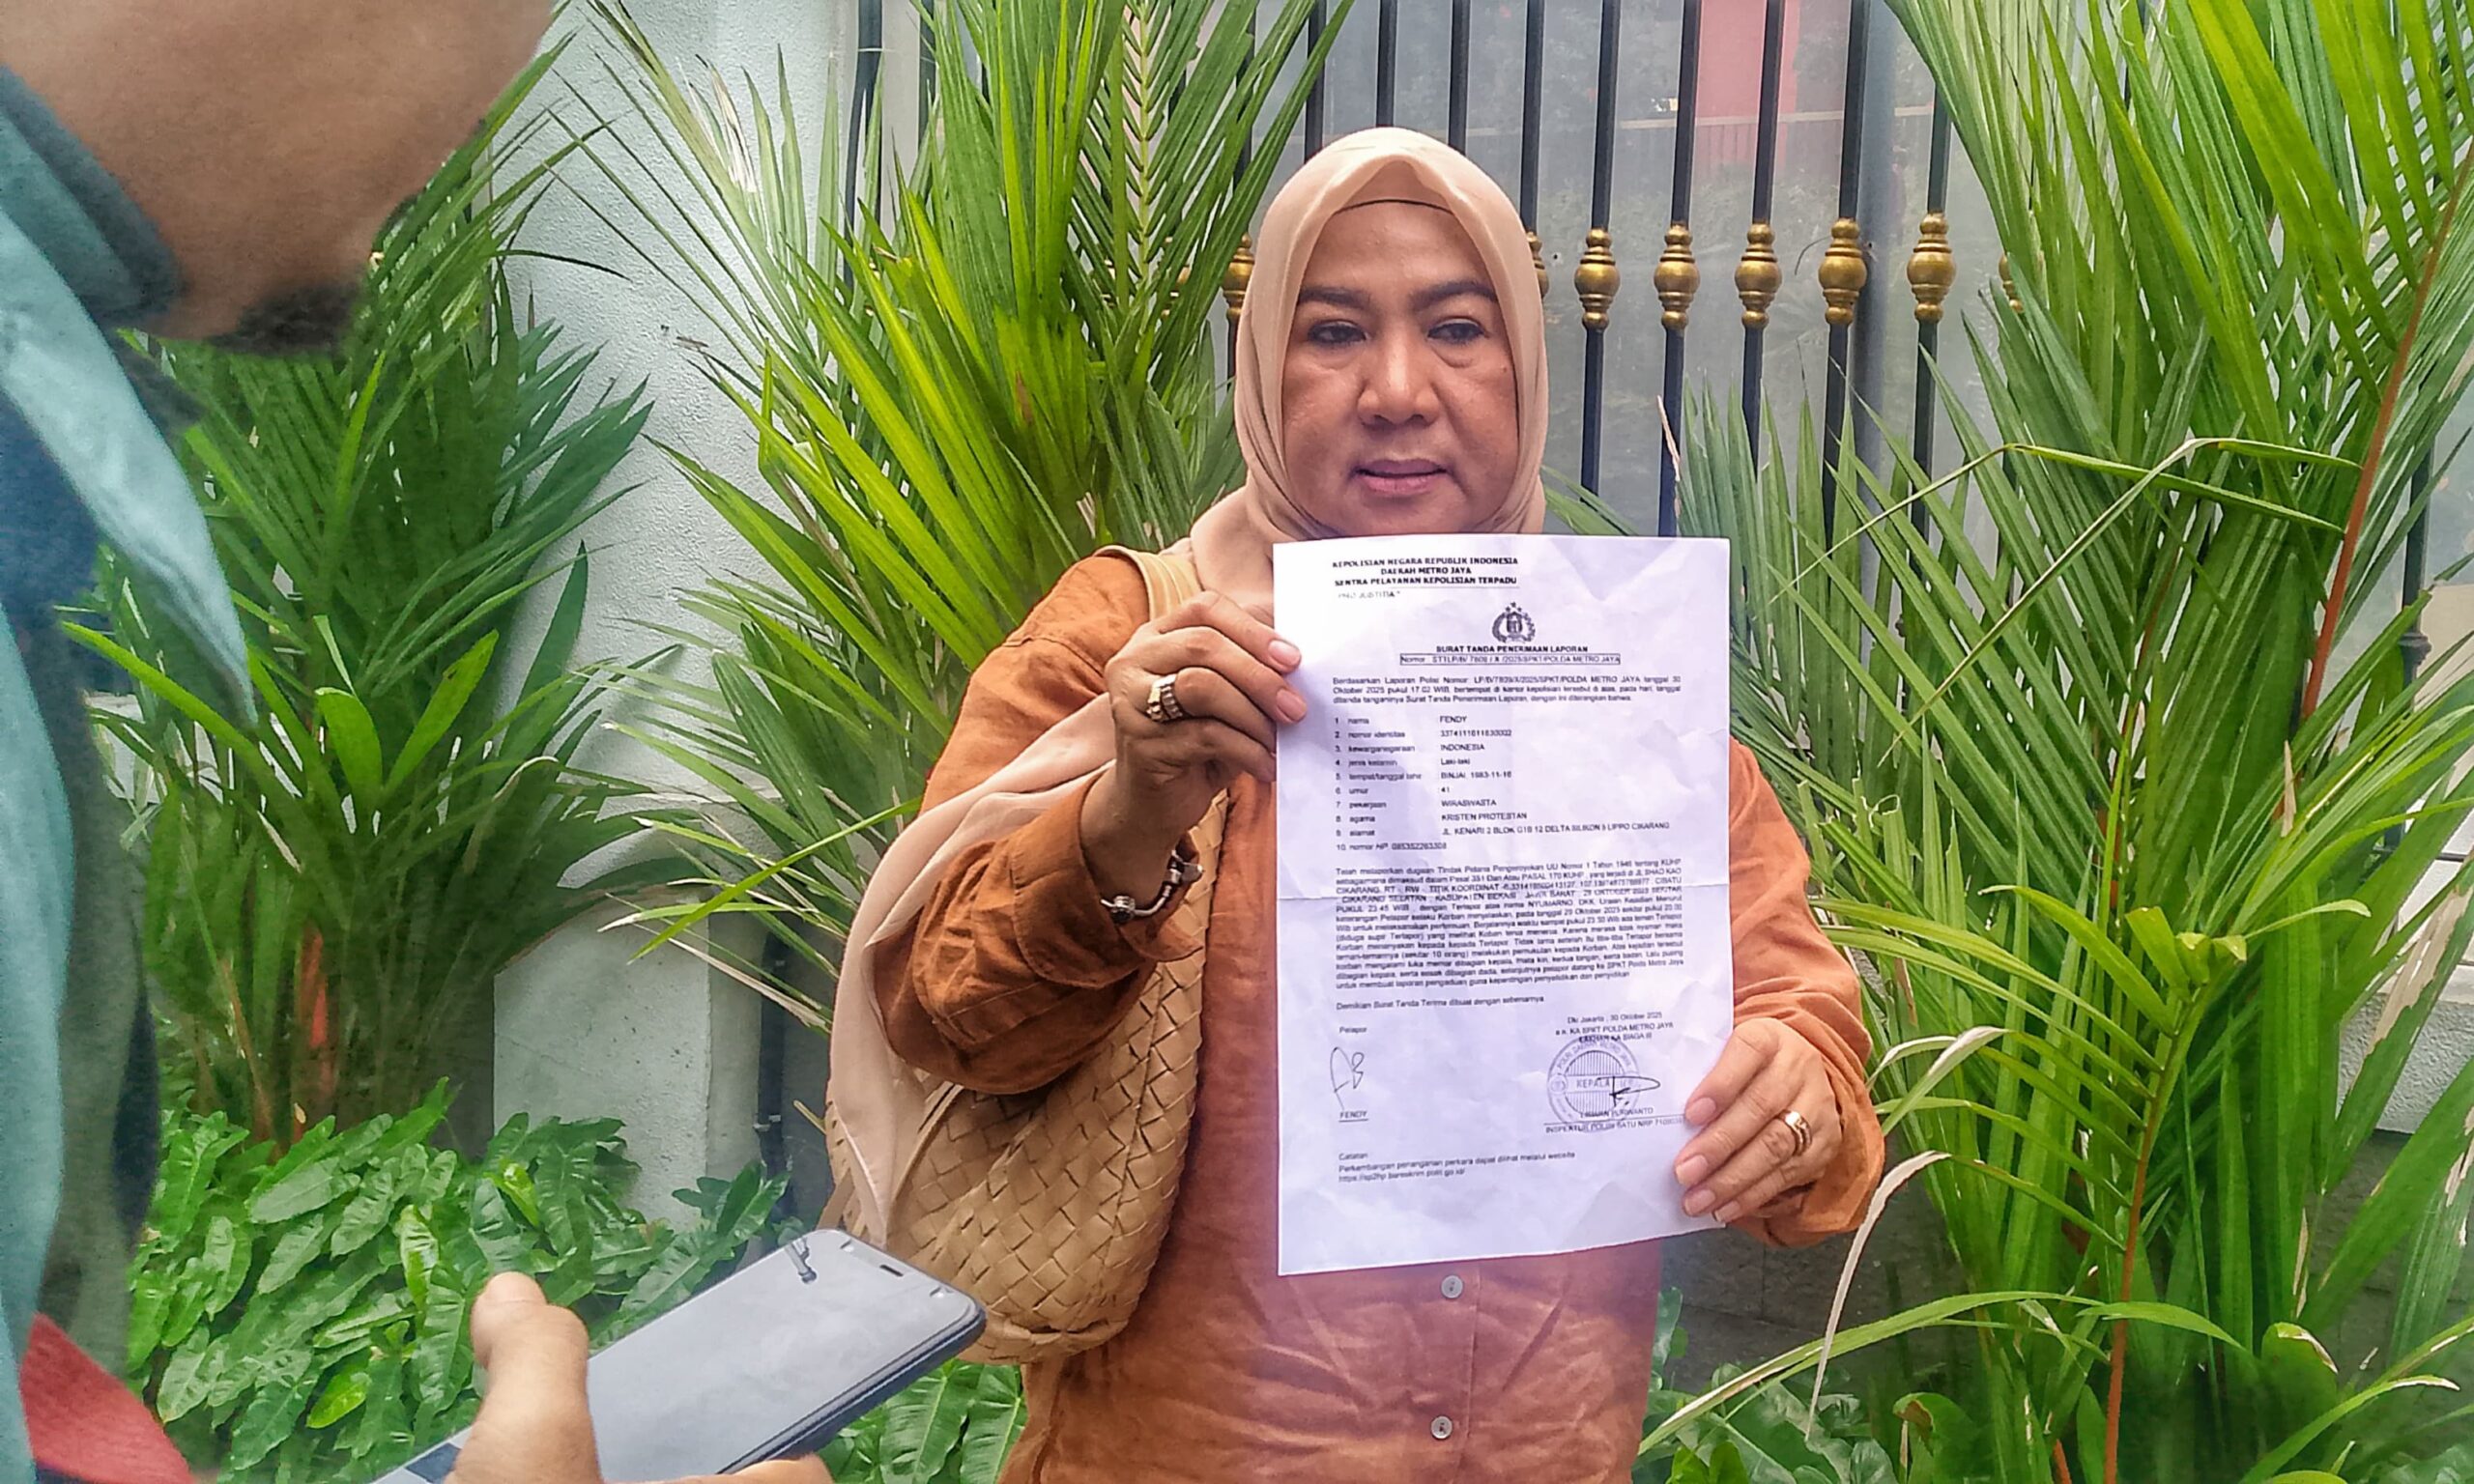 KEPOLISIAN NEGARA REPUBLIK INDONESIA
DAERAH METRO JAYA
SENTRA PELAYANAN KEPOLISIAN TERPADU
"PRO JUSTITIA"
SURAT TANDA PENERIMAAN LAPORAN
Nomor : STTLP/B/ / X /2025/SPKT/POLDA METRO JAYA
Berdasarkan Laporan Polisi Nomor LP/B/ /X/2025/SPKT/POLDA METRO JAYA tanggal 30
Oktober 2025 pukul 17.02 WIB, bertempat di kantor kepolisian tersebut di atas, pada hari, tanggal
ditanda tanganinya Surat Tanda Penerimaan Laporan, dengan ini diterangkan bahwa.
1. nama FENDY
2. nomor identitas
3. kewarganegaraan INDONESIA
4. jenis kelamin Laki-laki
5. tempat/tanggal lahir BINJAI,
6. umur 41
7. pekerjaan WIRASWASTA
8. agama KRISTEN PROTESTAN
9. alamat JL. KENARI 2 BLOK G1B 12 DELTA SILIKON LIPPO CIKARANG
10. nomor HP
Telah melaporkan dugaan Tindak Pidana Pengeroyokan UU Nomor 1 Tahun 1946 tentang KUHP
sebagaimana dimaksud dalam Pasal 351 Dan Atau PASAL 170 KUHP, yang terjadi di JL
CIKARANG, RT - RW - TITIK KOORDINAT CIBATU
CIKARANG SELATAN, KABUPATEN BEKASI, JAWA BARAT, OKTOBER 2025 SEKITAR
PUKUL 23.45 WIB, dengan Terlapor atas nama NYUMARNO, DKK, Uraian Kejadian Menurut
keterangan Pelapor selaku Korban menjelaskan, pada tanggal 29 Oktober 2025 sekitar pukul
Wib untuk melaksanakan pertemuan. Berjalannya waktu sampai pukul Wib ada teman Terlapor
(diduga supir Terlapor) yang melihat Koban terus menerus. Karena merasa tidak nyaman maka
Korban menanyakan kepada kepada Terlapor. Tidak lama setelah itu tiba-tiba Terlapor bersama
teman-temannya (sekitar 10 orang) melakukan pemukulan kepada Korban. Atas kejadian tersebut
korban mengalami luka memar dibagian kepala, mata kiri, kedua tangan, serta badan. Lalu pusing
dibagian kepala, serta sesak dibagian dada, selanjutnya pelapor datang ke SPKT Polda Metro Jaya
untuk membuat laporan pengaduan guna kepentingan penyelidikan dan penyidikan
Demikian Surat Tanda Terima dibuat dengan sebenarnya
Pelapor
Dki Jakarta, 30 Oktober 2025
a.n. KA SPKT POLDA METRO JAYA
KA SIAGA III
KEPALA
FENDY
PURWANTO
INSPEKTUR POLISI SATU NRP
Catatan
Perkembangan penanganan perkara dapat dilihat melalui website
https://sp2hp.bareskrim.polri.go.id/